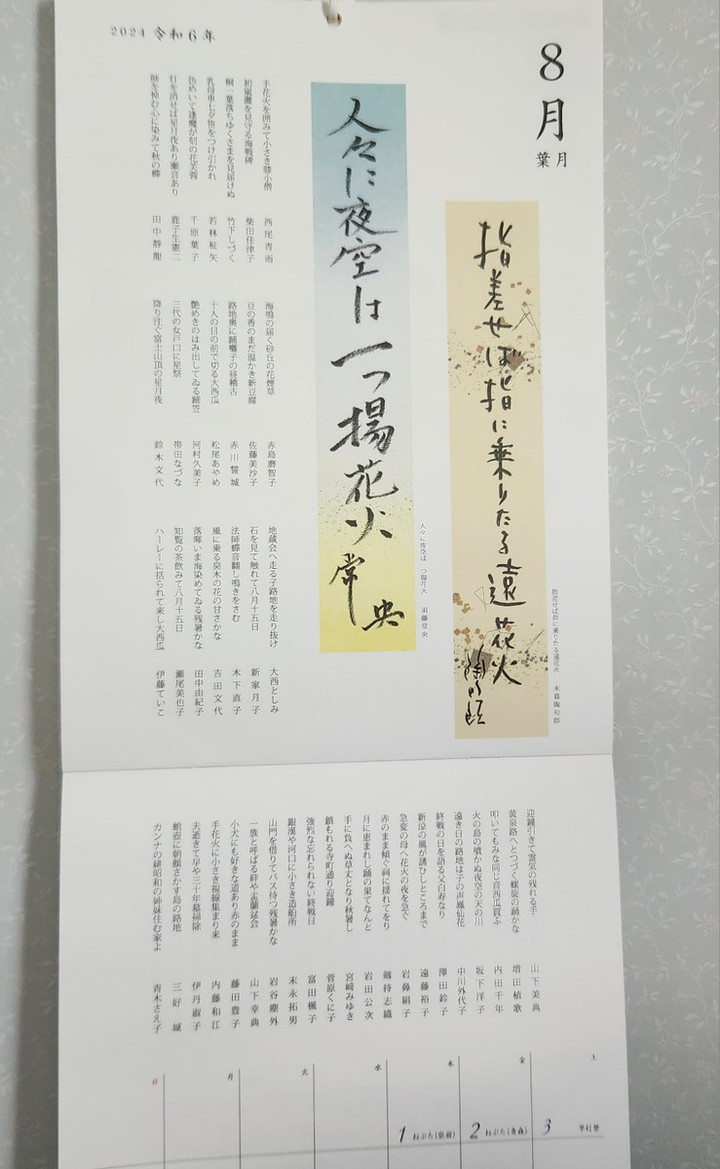 2024 令和6年
8月
葉月
指差せば指に乗りたる遠花火
指差せば指に乗りたる遠花火 木暮陶句郎
人々に夜空は一つ揚花火 常央
人々に夜空は一つ揚花火 須藤常央
手花火を囲みて小さき膝小僧 西尾青雨
初嵐灘を見守る海戦碑 柴田佳津子
桐一葉落ちゆくさまを見届けぬ 竹下しづく
乳母車七夕笹をつけ引かれ 若林柾矢
色めいて逢魔が刻の花芙蓉 千原葉子
灯を消せば星月夜あり瀬音あり 鹿子生憲二
師を悼む心に染みて秋の蟬 田中静龍
海鳴の届く砂丘の花煙草 赤島磨智子
豆の香のまだ温かき新豆腐 佐藤美沙子
路地奥に踊囃子の昼稽古 赤川誓城
十人の目の前で切る大西瓜 松尾あやめ
艶めきのはみ出してゐる踊笠 河村久美子
三代の女戸口に星祭 帯田なづな
降り注ぐ富士山頂の星月夜 鈴木文代
地蔵会へ走る子路地を走り抜け 大西としみ
石を見て触れて八月十五日 新家月子
法師蟬音翻し鳴きをさむ 木下直子
風に乗る臭木の花の甘さかな 吉田文代
落暉いま海染めてゐる残暑かな 田中由紀子
知覧の茶飲みて八月十五日 瀬尾美也子
ハーレーに括られて来し大西瓜 伊藤ていこ
迎鐘引きて霊気の残れる手 山下美典
黄泉路へとつづく螺旋の踊かな 増田植歌
叩いてもみな同じ音西瓜買ふ 内田千年
火の島の噴かぬ夜空の天の川 坂下洋子
遠き日の路地は子の声鳳仙花 中川外代子
終戦の日を語る父白寿なり 澤田鈴子
新涼の風が誘ひしところまで 遠藤裕子
急変の母へ花火の夜を急ぐ 岩鼻絹子
赤のまま傾ぐ祠に揺れてをり 鶴持志織
月に恵まれし踊の果てなんと 岩田公次
手に負へぬ草丈となり秋暑し 宮﨑みゆき
鎖もれる寺町通り迎鐘 菅原くに子
強烈な忘れられない終戦日 富田楓子
銀漢や河口に小さき造船所 末永拓男
山門を借りてバス待つ残暑かな 岩谷塵外
一族と呼ばる絆や盂蘭盆会 山下幸典
小犬にも好きな道あり赤のまま 藤田豊子
手花火に小さき視線集まり来 内藤和江
夫逝きて早や三十年墓掃除 伊丹淑子
蛸壺に朝顔さかす島の路地 三好城
カンナの緋昭和の姉妹住む家よ 青木さえ子
日 月 火 水 木 金 土
1 ねぷた(弘前)
2 ねぶた(青森)
3 竿灯祭